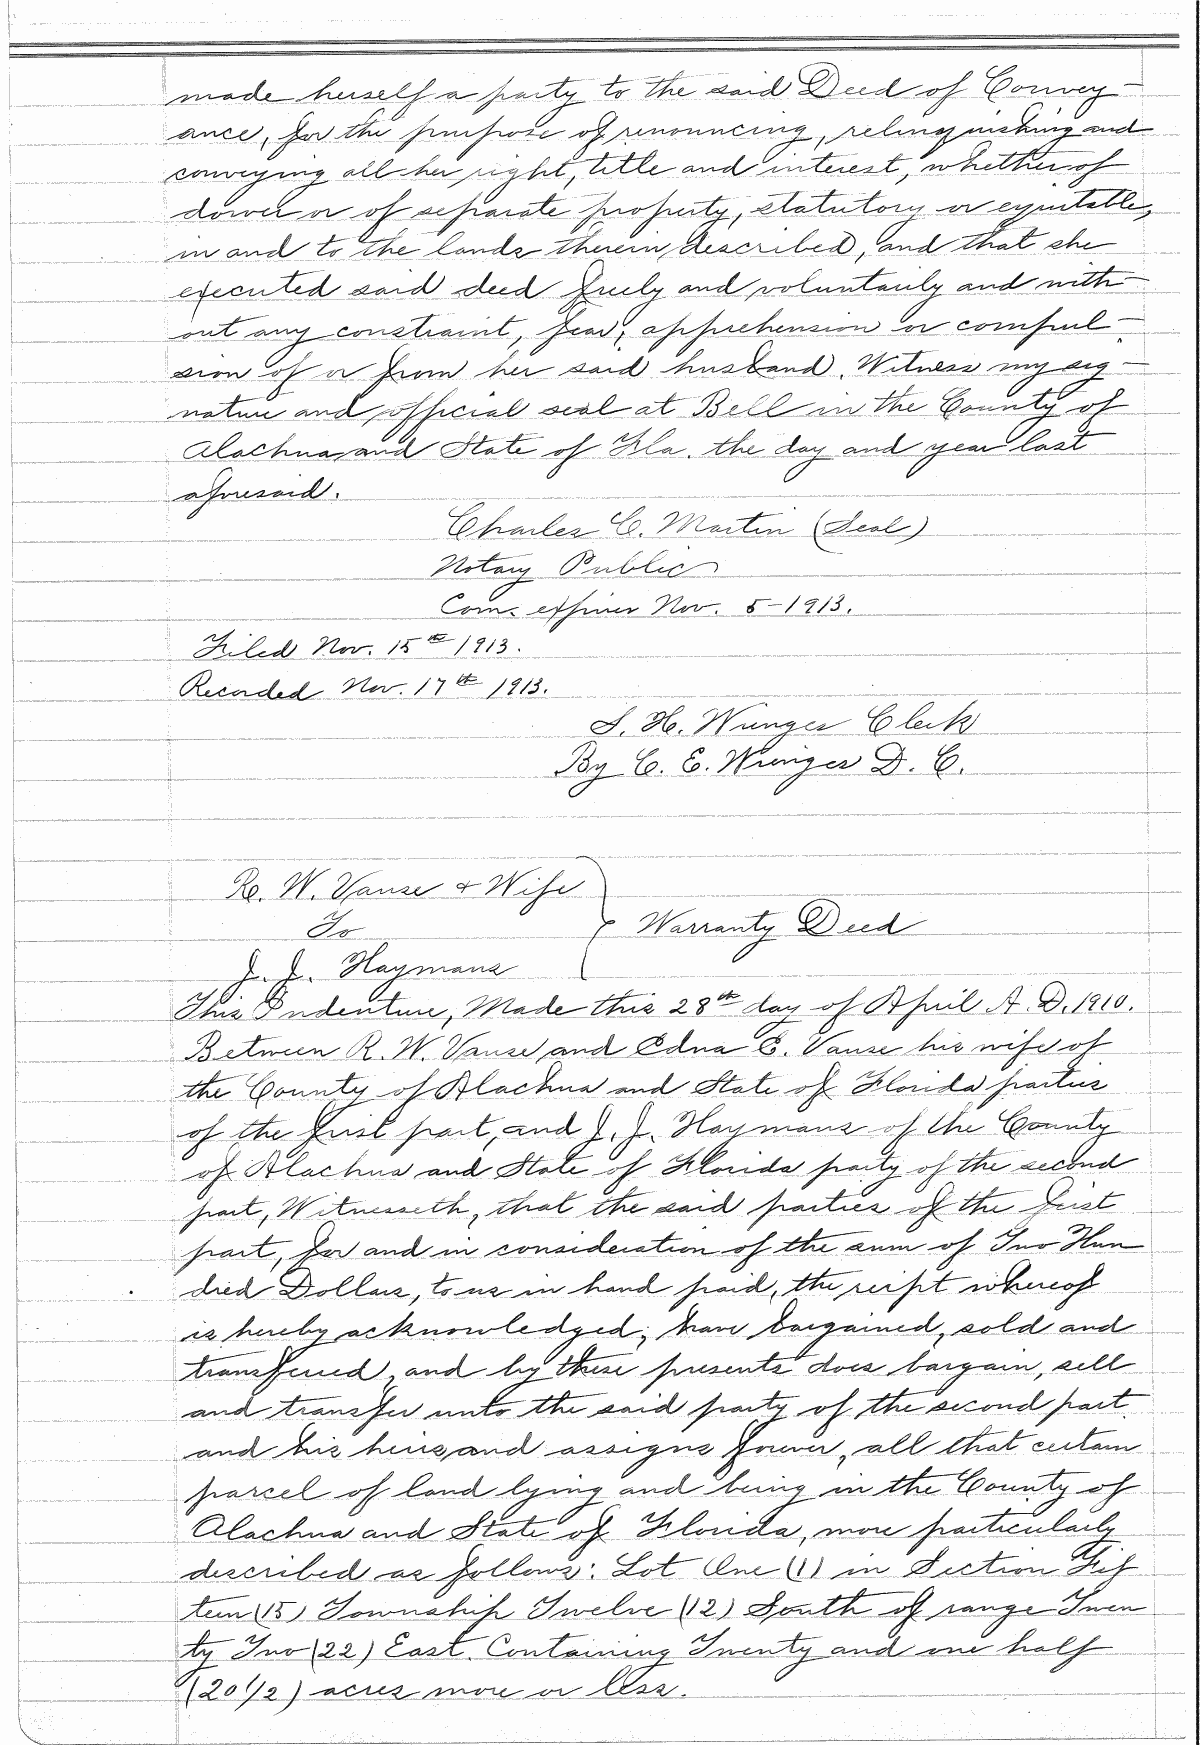 made herself a party to the said Deed of Convey-
ance, for the purpose of renouncing, relinquishing and
conveying all her right, title and interest, whether of
dower or of separate property, statutory or equitable,
in and to the lands therein described, and that she
executed said deed freely and voluntarily and with-
out any constraint, fear, apprehension or compul-
sion of or from her said husband. Witness my sig-
nature and official seal at Bell in the County of
Alachua and State of Fla. the day and year last
aforesaid.
Charles C. Martin (Seal)
Notary Public
Com. expires Nov. 5-1913.
Filed Nov. 15th 1913.
Recorded Nov. 17th 1913.
S. H. Wienges Clerk
By C. E. Wienges D. C.
R. W. Vause & Wife
To
J. J. Haymans
Warranty Deed
This Indenture, Made this 28th day of April A. D. 1910.
Between R. W. Vause and Edna E. Vause his wife of
the County of Alachua and State of Florida parties
of the first part, and J. J. Haymans of the County
of Alachua and State of Florida party of the second
part, Witnesseth, that the said parties of the first
part, for and in consideration of the sum of Two Hun
dred Dollars, to us in hand paid, the reript whereof
is hereby acknowledged, have bargained, sold and
transferred, and by these presents does bargain, sell
and transfer unto the said party of the second part
and his heirs and assigns forever, all that certain
parcel of land lying and being in the County of
Alachua and State of Florida, more particularly
described as follows: Lot One (1) in Section Fif
teen (15) Township Twelve (12) South of range Twen
ty Two (22) East. Containing Twenty and one half
(20 1/2) acres more or less.